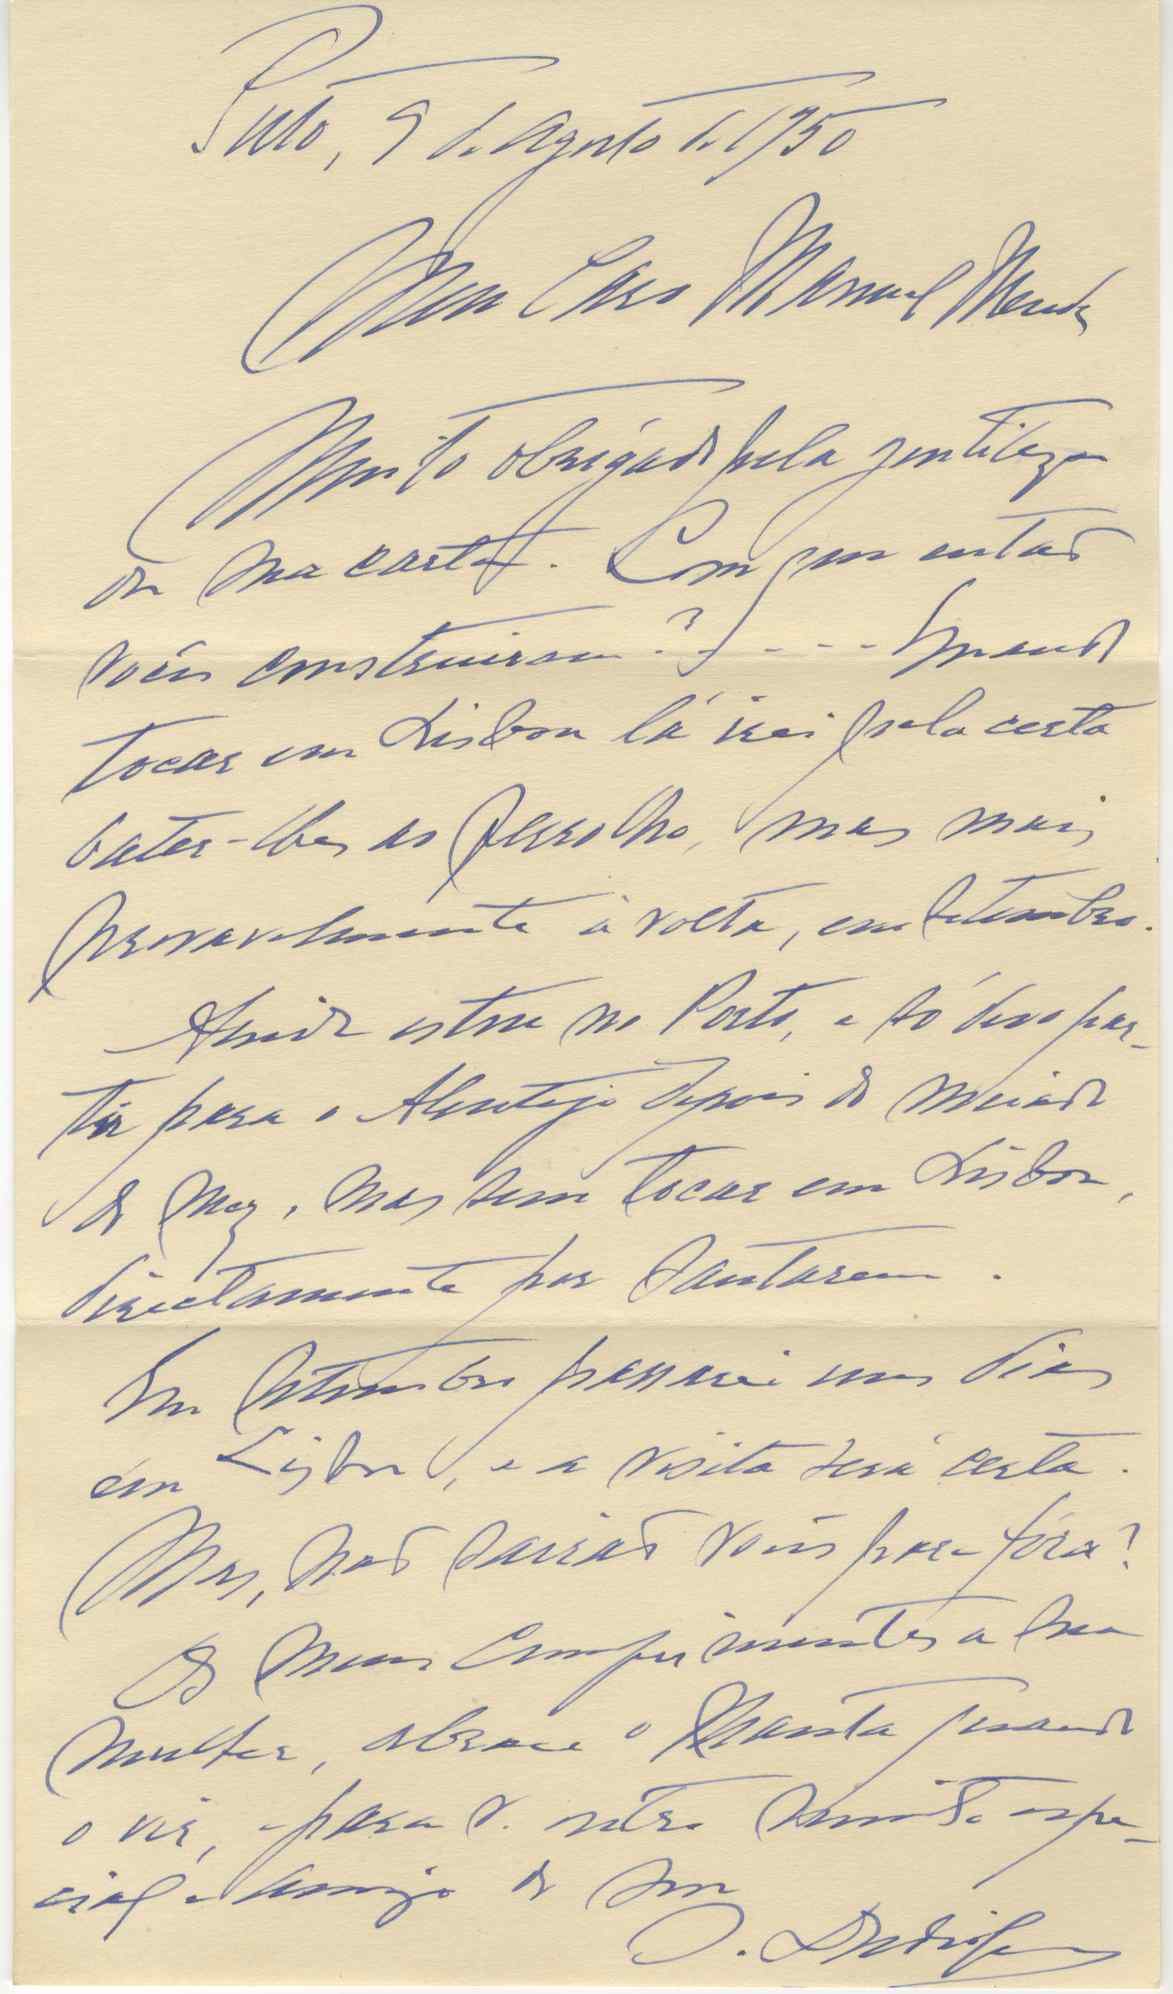 Porto, 9 de Agosto de 1950
Meu Caro Manuel Mendes
Muito obrigado pela gentileza
da sua carta. Com que então
vocês construiram? . . . . Quando
tocar em Lisboa lá irei pela certa
bater-lhes ao ferrolho, mas mais
provavelmente à volta, em Setembro.
Ainda estou no Porto, e só devo par-
tir para o Alentejo depois do meiado
do mez, mas sem tocar em Lisboa,
directamente por Santarem.
Em Setembro passarei uns dias
em Lisboa, e a visita será certa.
Mas, não sairão vocês para fóra?
Os meus cumprimentos a sua
mulher, abrace o Manta quando
o vir, e para V. outro muito espe-
cial e amigo do seu